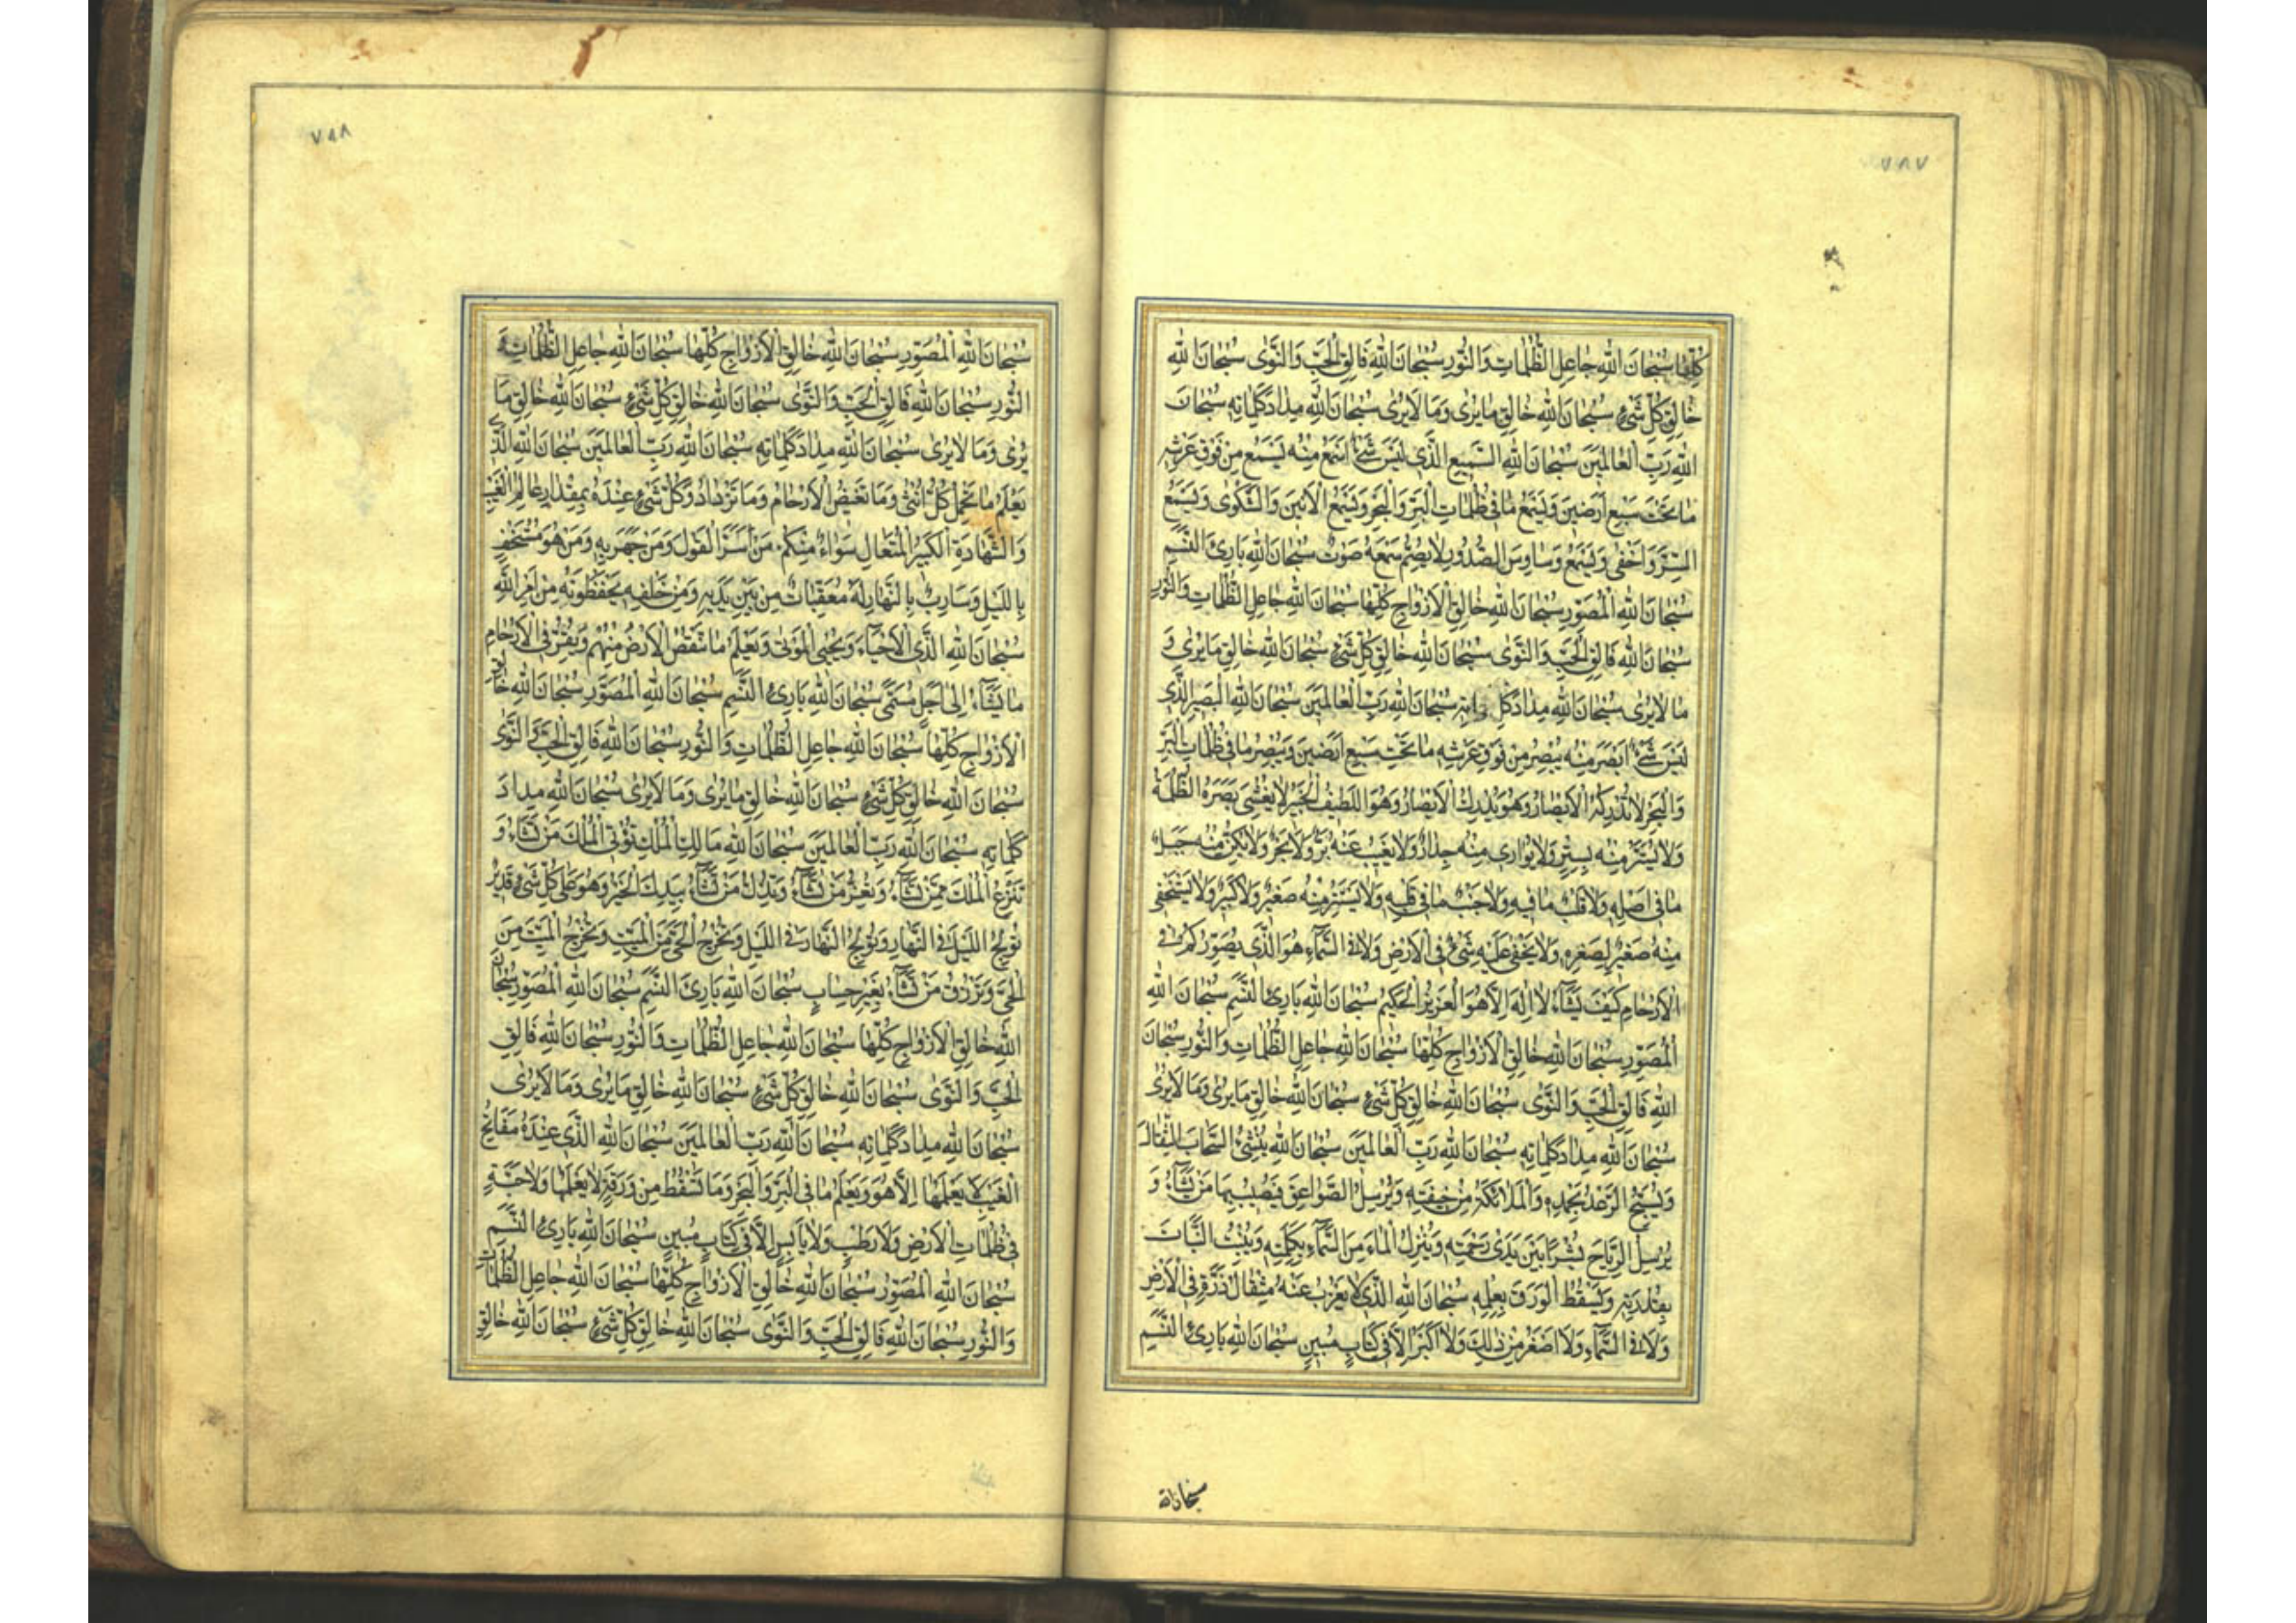 ٧٨٧
كُلِّهَا سُبْحَانَ اللهِ جَاعِلِ الظُّلُمَاتِ وَالنُّورِ سُبْحَانَ اللهِ فَالِقِ الْحَبِّ وَالنَّوَى سُبْحَانَ اللهِ
خَالِقِ كُلِّ شَيْءٍ سُبْحَانَ اللهِ خَالِقِ مَا يُرَى وَمَا لَا يُرَى سُبْحَانَ اللهِ مِدَادَ كَلِمَاتِهِ سُبْحَانَ
اللهِ رَبِّ الْعَالَمِينَ سُبْحَانَ اللهِ السَّمِيعِ الَّذِي لَيْسَ شَيْءٌ اَسْمَعَ مِنْهُ يَسْمَعُ مِنْ فَوْقِ عَرْشِهِ
مَا تَحْتَ سَبْعِ اَرَضِينَ وَيَسْمَعُ مَا فِي ظُلُمَاتِ الْبَرِّ وَالْبَحْرِ وَيَسْمَعُ الْاَنِينَ وَالشَّكْوَى وَيَسْمَعُ
السِّرَّ وَاَخْفَى وَيَسْمَعُ وَسَاوِسَ الصُّدُورِ لَا يُصِمُّ سَمْعَهُ صَوْتٌ سُبْحَانَ اللهِ بَارِئِ النَّسَمِ
سُبْحَانَ اللهِ الْمُصَوِّرِ سُبْحَانَ اللهِ خَالِقِ الْاَزْوَاجِ كُلِّهَا سُبْحَانَ اللهِ جَاعِلِ الظُّلُمَاتِ وَالنُّورِ
سُبْحَانَ اللهِ فَالِقِ الْحَبِّ وَالنَّوَى سُبْحَانَ اللهِ خَالِقِ كُلِّ شَيْءٍ سُبْحَانَ اللهِ خَالِقِ مَا يُرَى وَ
مَا لَا يُرَى سُبْحَانَ اللهِ مِدَادَ كَلِمَاتِهِ سُبْحَانَ اللهِ رَبِّ الْعَالَمِينَ سُبْحَانَ اللهِ الْبَصِيرِ الَّذِي
لَيْسَ شَيْءٌ اَبْصَرَ مِنْهُ يُبْصِرُ مِنْ فَوْقِ عَرْشِهِ مَا تَحْتَ سَبْعِ اَرَضِينَ وَيُبْصِرُ مَا فِي ظُلُمَاتِ الْبَرِّ
وَالْبَحْرِ لَا تُدْرِكُهُ الْاَبْصَارُ وَهُوَ يُدْرِكُ الْاَبْصَارَ وَهُوَ اللَّطِيفُ الْخَبِيرُ لَا يُغْشِي بَصَرَهُ الظُّلْمَةُ
وَلَا يُسْتَتَرُ مِنْهُ بِسِتْرٍ وَلَا يُوَارِي مِنْهُ جِدَارٌ وَلَا يَغِيبُ عَنْهُ بَرٌّ وَلَا بَحْرٌ وَلَا يَكُنُّ مِنْهُ جَبَلٌ
مَا فِي اَصْلِهِ وَلَا قَلْبٌ مَا فِيهِ وَلَا جَنْبٌ مَا فِي قَلْبِهِ وَلَا يَسْتَتِرُ مِنْهُ صَغِيرٌ وَلَا كَبِيرٌ وَلَا يَسْتَخْفِي
مِنْهُ صَغِيرٌ لِصِغَرِهِ وَلَا يَخْفَى عَلَيْهِ شَيْءٌ فِي الْاَرْضِ وَلَا فِي السَّمَاءِ هُوَ الَّذِي يُصَوِّرُكُمْ فِي
الْاَرْحَامِ كَيْفَ يَشَاءُ لَا اِلَهَ اِلَّا هُوَ الْعَزِيزُ الْحَكِيمُ سُبْحَانَ اللهِ بَارِئِ النَّسَمِ سُبْحَانَ اللهِ
الْمُصَوِّرِ سُبْحَانَ اللهِ خَالِقِ الْاَزْوَاجِ كُلِّهَا سُبْحَانَ اللهِ جَاعِلِ الظُّلُمَاتِ وَالنُّورِ سُبْحَانَ
اللهِ فَالِقِ الْحَبِّ وَالنَّوَى سُبْحَانَ اللهِ خَالِقِ كُلِّ شَيْءٍ سُبْحَانَ اللهِ خَالِقِ مَا يُرَى وَمَا لَا يُرَى
سُبْحَانَ اللهِ مِدَادَ كَلِمَاتِهِ سُبْحَانَ اللهِ رَبِّ الْعَالَمِينَ سُبْحَانَ اللهِ يُنْشِئُ السَّحَابَ الثِّقَالَ
وَيُسَبِّحُ الرَّعْدُ بِحَمْدِهِ وَالْمَلَائِكَةُ مِنْ خِيفَتِهِ وَيُرْسِلُ الصَّوَاعِقَ فَيُصِيبُ بِهَا مَنْ يَشَاءُ وَ
يُرْسِلُ الرِّيَاحَ بُشْرًا بَيْنَ يَدَيْ رَحْمَتِهِ وَيُنْزِلُ الْمَاءَ مِنَ السَّمَاءِ بِكَلِمَتِهِ وَيُنْبِتُ النَّبَاتَ
بِقُدْرَتِهِ وَيُسْقِطُ الْوَرَقَ بِعِلْمِهِ سُبْحَانَ اللهِ الَّذِي لَا يَعْزُبُ عَنْهُ مِثْقَالُ ذَرَّةٍ فِي الْاَرْضِ
وَلَا فِي السَّمَاءِ وَلَا اَصْغَرُ مِنْ ذَلِكَ وَلَا اَكْبَرُ اِلَّا فِي كِتَابٍ مُبِينٍ سُبْحَانَ اللهِ بَارِئِ النَّسَمِ
سبحان الله
٧٨٨
سُبْحَانَ اللهِ الْمُصَوِّرِ سُبْحَانَ اللهِ خَالِقِ الْاَزْوَاجِ كُلِّهَا سُبْحَانَ اللهِ جَاعِلِ الظُّلُمَاتِ وَ
النُّورِ سُبْحَانَ اللهِ فَالِقِ الْحَبِّ وَالنَّوَى سُبْحَانَ اللهِ خَالِقِ كُلِّ شَيْءٍ سُبْحَانَ اللهِ خَالِقِ مَا
يُرَى وَمَا لَا يُرَى سُبْحَانَ اللهِ مِدَادَ كَلِمَاتِهِ سُبْحَانَ اللهِ رَبِّ الْعَالَمِينَ سُبْحَانَ اللهِ الَّذِي
يَعْلَمُ مَا تَحْمِلُ كُلُّ اُنْثَى وَمَا تَغِيضُ الْاَرْحَامُ وَمَا تَزْدَادُ وَكُلُّ شَيْءٍ عِنْدَهُ بِمِقْدَارٍ عَالِمُ الْغَيْبِ
وَالشَّهَادَةِ الْكَبِيرُ الْمُتَعَالِ سَوَاءٌ مِنْكُمْ مَنْ اَسَرَّ الْقَوْلَ وَمَنْ جَهَرَ بِهِ وَمَنْ هُوَ مُسْتَخْفٍ
بِاللَّيْلِ وَسَارِبٌ بِالنَّهَارِ لَهُ مُعَقِّبَاتٌ مِنْ بَيْنِ يَدَيْهِ وَمِنْ خَلْفِهِ يَحْفَظُونَهُ مِنْ اَمْرِ اللهِ
سُبْحَانَ اللهِ الَّذِي الْاَحْيَاءَ وَيُحْيِي الْمَوْتَى وَيَعْلَمُ مَا تَنْقُصُ الْاَرْضُ مِنْهُمْ وَيُقِرُّ فِي الْاَرْحَامِ
مَا يَشَاءُ اِلَى اَجَلٍ مُسَمًّى سُبْحَانَ اللهِ بَارِئِ النَّسَمِ سُبْحَانَ اللهِ الْمُصَوِّرِ سُبْحَانَ اللهِ خَالِقِ
الْاَزْوَاجِ كُلِّهَا سُبْحَانَ اللهِ جَاعِلِ الظُّلُمَاتِ وَالنُّورِ سُبْحَانَ اللهِ فَالِقِ الْحَبِّ وَالنَّوَى
سُبْحَانَ اللهِ خَالِقِ كُلِّ شَيْءٍ سُبْحَانَ اللهِ خَالِقِ مَا يُرَى وَمَا لَا يُرَى سُبْحَانَ اللهِ مِدَادَ
كَلِمَاتِهِ سُبْحَانَ اللهِ رَبِّ الْعَالَمِينَ سُبْحَانَ اللهِ مَالِكِ الْمُلْكِ تُؤْتِي الْمُلْكَ مَنْ تَشَاءُ وَ
تَنْزِعُ الْمُلْكَ مِمَّنْ تَشَاءُ وَتُعِزُّ مَنْ تَشَاءُ وَتُذِلُّ مَنْ تَشَاءُ بِيَدِكَ الْخَيْرُ وَهُوَ عَلَى كُلِّ شَيْءٍ قَدِيرٌ
تُولِجُ اللَّيْلَ فِي النَّهَارِ وَتُولِجُ النَّهَارَ فِي اللَّيْلِ وَتُخْرِجُ الْحَيَّ مِنَ الْمَيِّتِ وَتُخْرِجُ الْمَيِّتَ مِنَ
الْحَيِّ وَتَرْزُقُ مَنْ تَشَاءُ بِغَيْرِ حِسَابٍ سُبْحَانَ اللهِ بَارِئِ النَّسَمِ سُبْحَانَ اللهِ الْمُصَوِّرِ سُبْحَانَ
اللهِ خَالِقِ الْاَزْوَاجِ كُلِّهَا سُبْحَانَ اللهِ جَاعِلِ الظُّلُمَاتِ وَالنُّورِ سُبْحَانَ اللهِ فَالِقِ
الْحَبِّ وَالنَّوَى سُبْحَانَ اللهِ خَالِقِ كُلِّ شَيْءٍ سُبْحَانَ اللهِ خَالِقِ مَا يُرَى وَمَا لَا يُرَى
سُبْحَانَ اللهِ مِدَادَ كَلِمَاتِهِ سُبْحَانَ اللهِ رَبِّ الْعَالَمِينَ سُبْحَانَ اللهِ الَّذِي عِنْدَهُ مَفَاتِحُ
الْغَيْبِ لَا يَعْلَمُهَا اِلَّا هُوَ وَيَعْلَمُ مَا فِي الْبَرِّ وَالْبَحْرِ وَمَا تَسْقُطُ مِنْ وَرَقَةٍ اِلَّا يَعْلَمُهَا وَلَا حَبَّةٍ
فِي ظُلُمَاتِ الْاَرْضِ وَلَا رَطْبٍ وَلَا يَابِسٍ اِلَّا فِي كِتَابٍ مُبِينٍ سُبْحَانَ اللهِ بَارِئِ النَّسَمِ
سُبْحَانَ اللهِ الْمُصَوِّرِ سُبْحَانَ اللهِ خَالِقِ الْاَزْوَاجِ كُلِّهَا سُبْحَانَ اللهِ جَاعِلِ الظُّلُمَاتِ
وَالنُّورِ سُبْحَانَ اللهِ فَالِقِ الْحَبِّ وَالنَّوَى سُبْحَانَ اللهِ خَالِقِ كُلِّ شَيْءٍ سُبْحَانَ اللهِ خَالِقِ